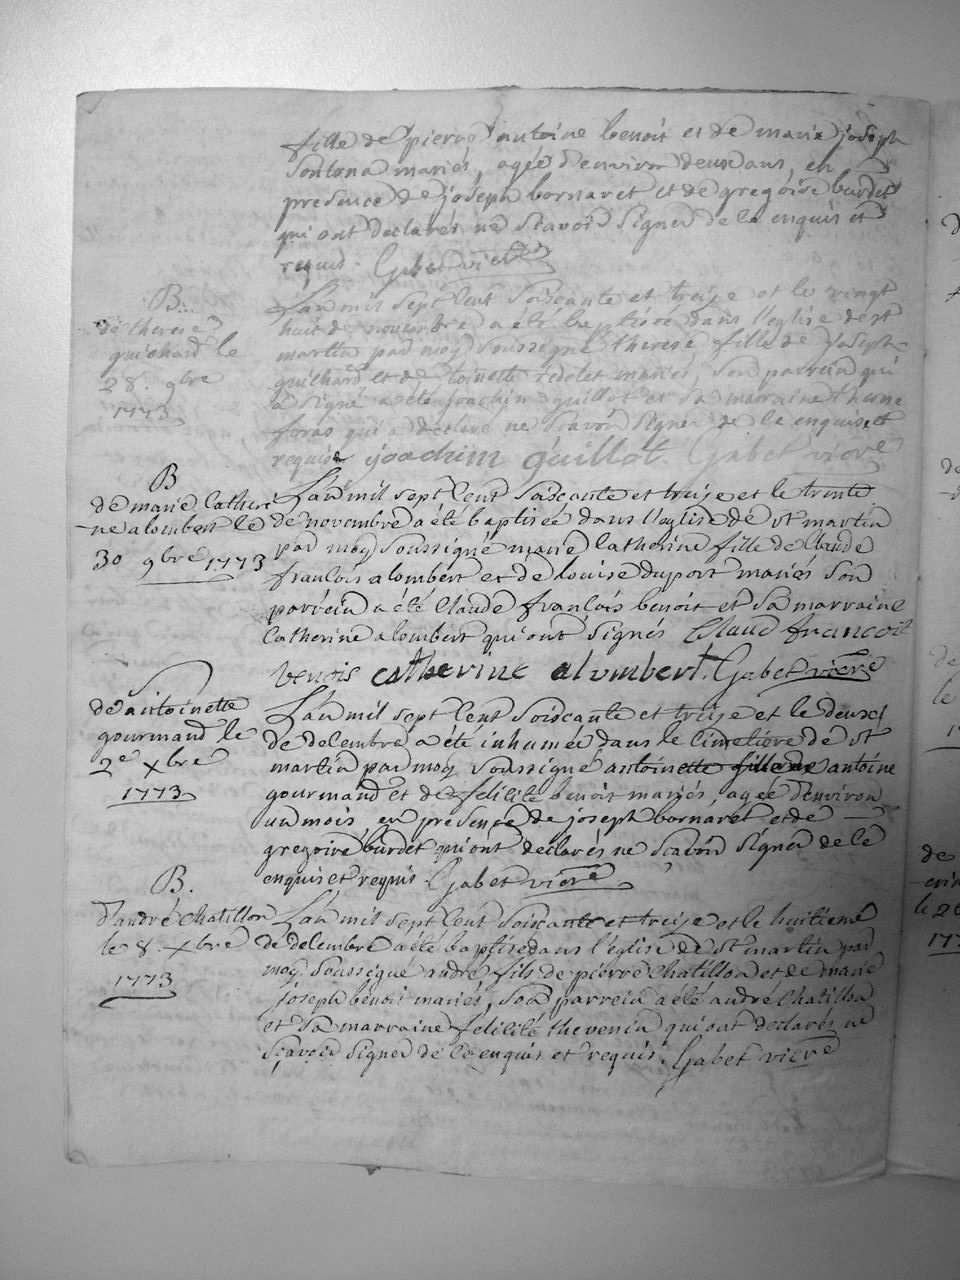 fille de pierre antoine benoit et de marie joseph
mariés, agée d'environ deux ans, en
presence de joseph bornaret et de gregoire burdet
qui ont declarés ne scavoir signer de ce enquis et
requis. Gabet vicre
B.
de therese
guichard le
28. 9bre
1773
L'an mil sept cent soiscante et treize et le vingt
huit de novembre a été baptisée dans l'eglise de st
martin par moy soussigné therese fille de joseph
guichard et de toinette mariés, son parrein qui
a signé a été joachin guillot et sa marraine
qui a declaré ne scavoir signer de ce enquise et
requise joachim guillot. Gabet vicre
B
de marie catheri
-ne alombert le
30 9bre 1773
L'an mil sept cent soiscante et treize et le trente
de novembre a été baptisée dans l'eglise de st martin
par moy soussigné marie catherine fille de claude
francois alombert et de louise duport mariés son
parrein a été claude francois benoit et sa marraine
catherine alombert qui ont signés Claud francois
benois catherine alombert. Gabet vicre
de antoinette
gourmand le
2e xbre
1773
L'an mil sept cent soiscante et treize et le deux
de decembre a été inhumée dans le cimetiere de st
martin par moy soussigné antoinette fille de antoine
gourmand et de felicité benoit mariés, agée d'environ
un mois en presence de joseph bornaret et de
gregoire burdet qui ont declarés ne scavoir signer de ce
enquis et requis. Gabet vicre
B.
d'andré chatillon
le 8. xbre
1773
L'an mil sept cent soiscante et treize et le huitieme
de decembre a été baptisé dans l'eglise de st martin par
moy soussigné andre fils de pierre chatillon et de marie
joseph benoit mariés, son parrein a été andré chatillon
et sa marraine felicité thevenin qui ont declarés ne
scavoir signer de ce enquis et requis. Gabet vicre